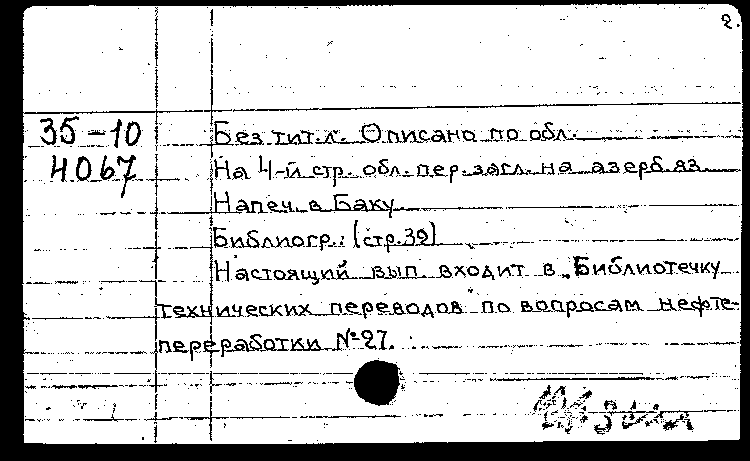 2.
35-10
4067
Без тит. л. Описано по обл.
На 4-й стр. обл. пер. загл. на азерб. яз.
Напеч. в Баку.
Библиогр.: (стр. 39)
Настоящий вып. входит в „Библиотечку
технических переводов по вопросам нефте-
переработки № 27.